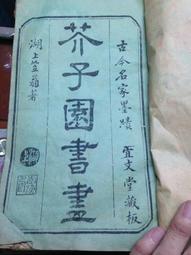 古今名家墨蹟 宜文堂藏板
芥子園書畫
湖上笠翁著